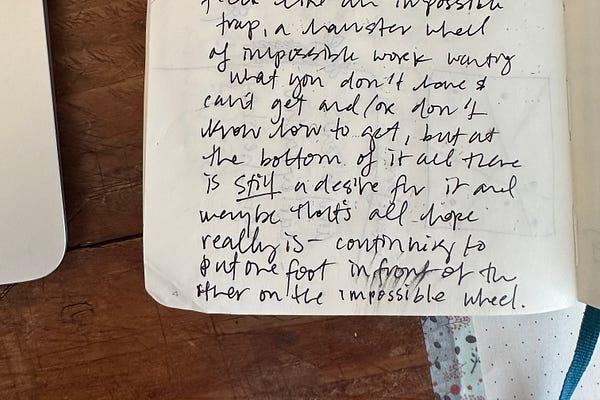 feels like an impossible
trap, a hamster wheel
of impossible work wanting
what you don't have &
can't get and/or don't
know how to get, but at
the bottom of it all there
is still a desire for it and
maybe that's all hope
really is - continuing to
put one foot in front of the
other on the impossible wheel.